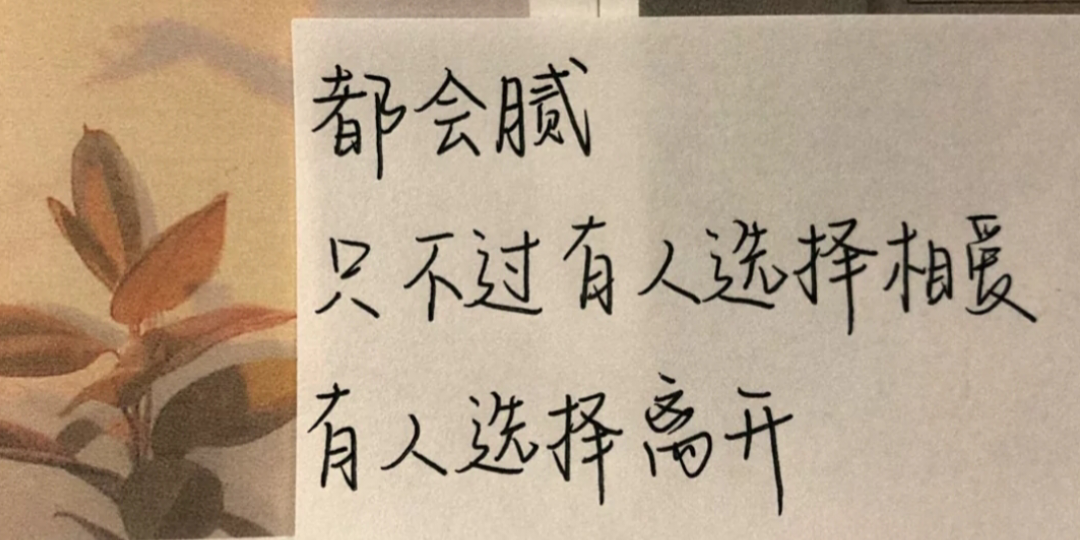 都会腻
只不过有人选择相爱
有人选择离开